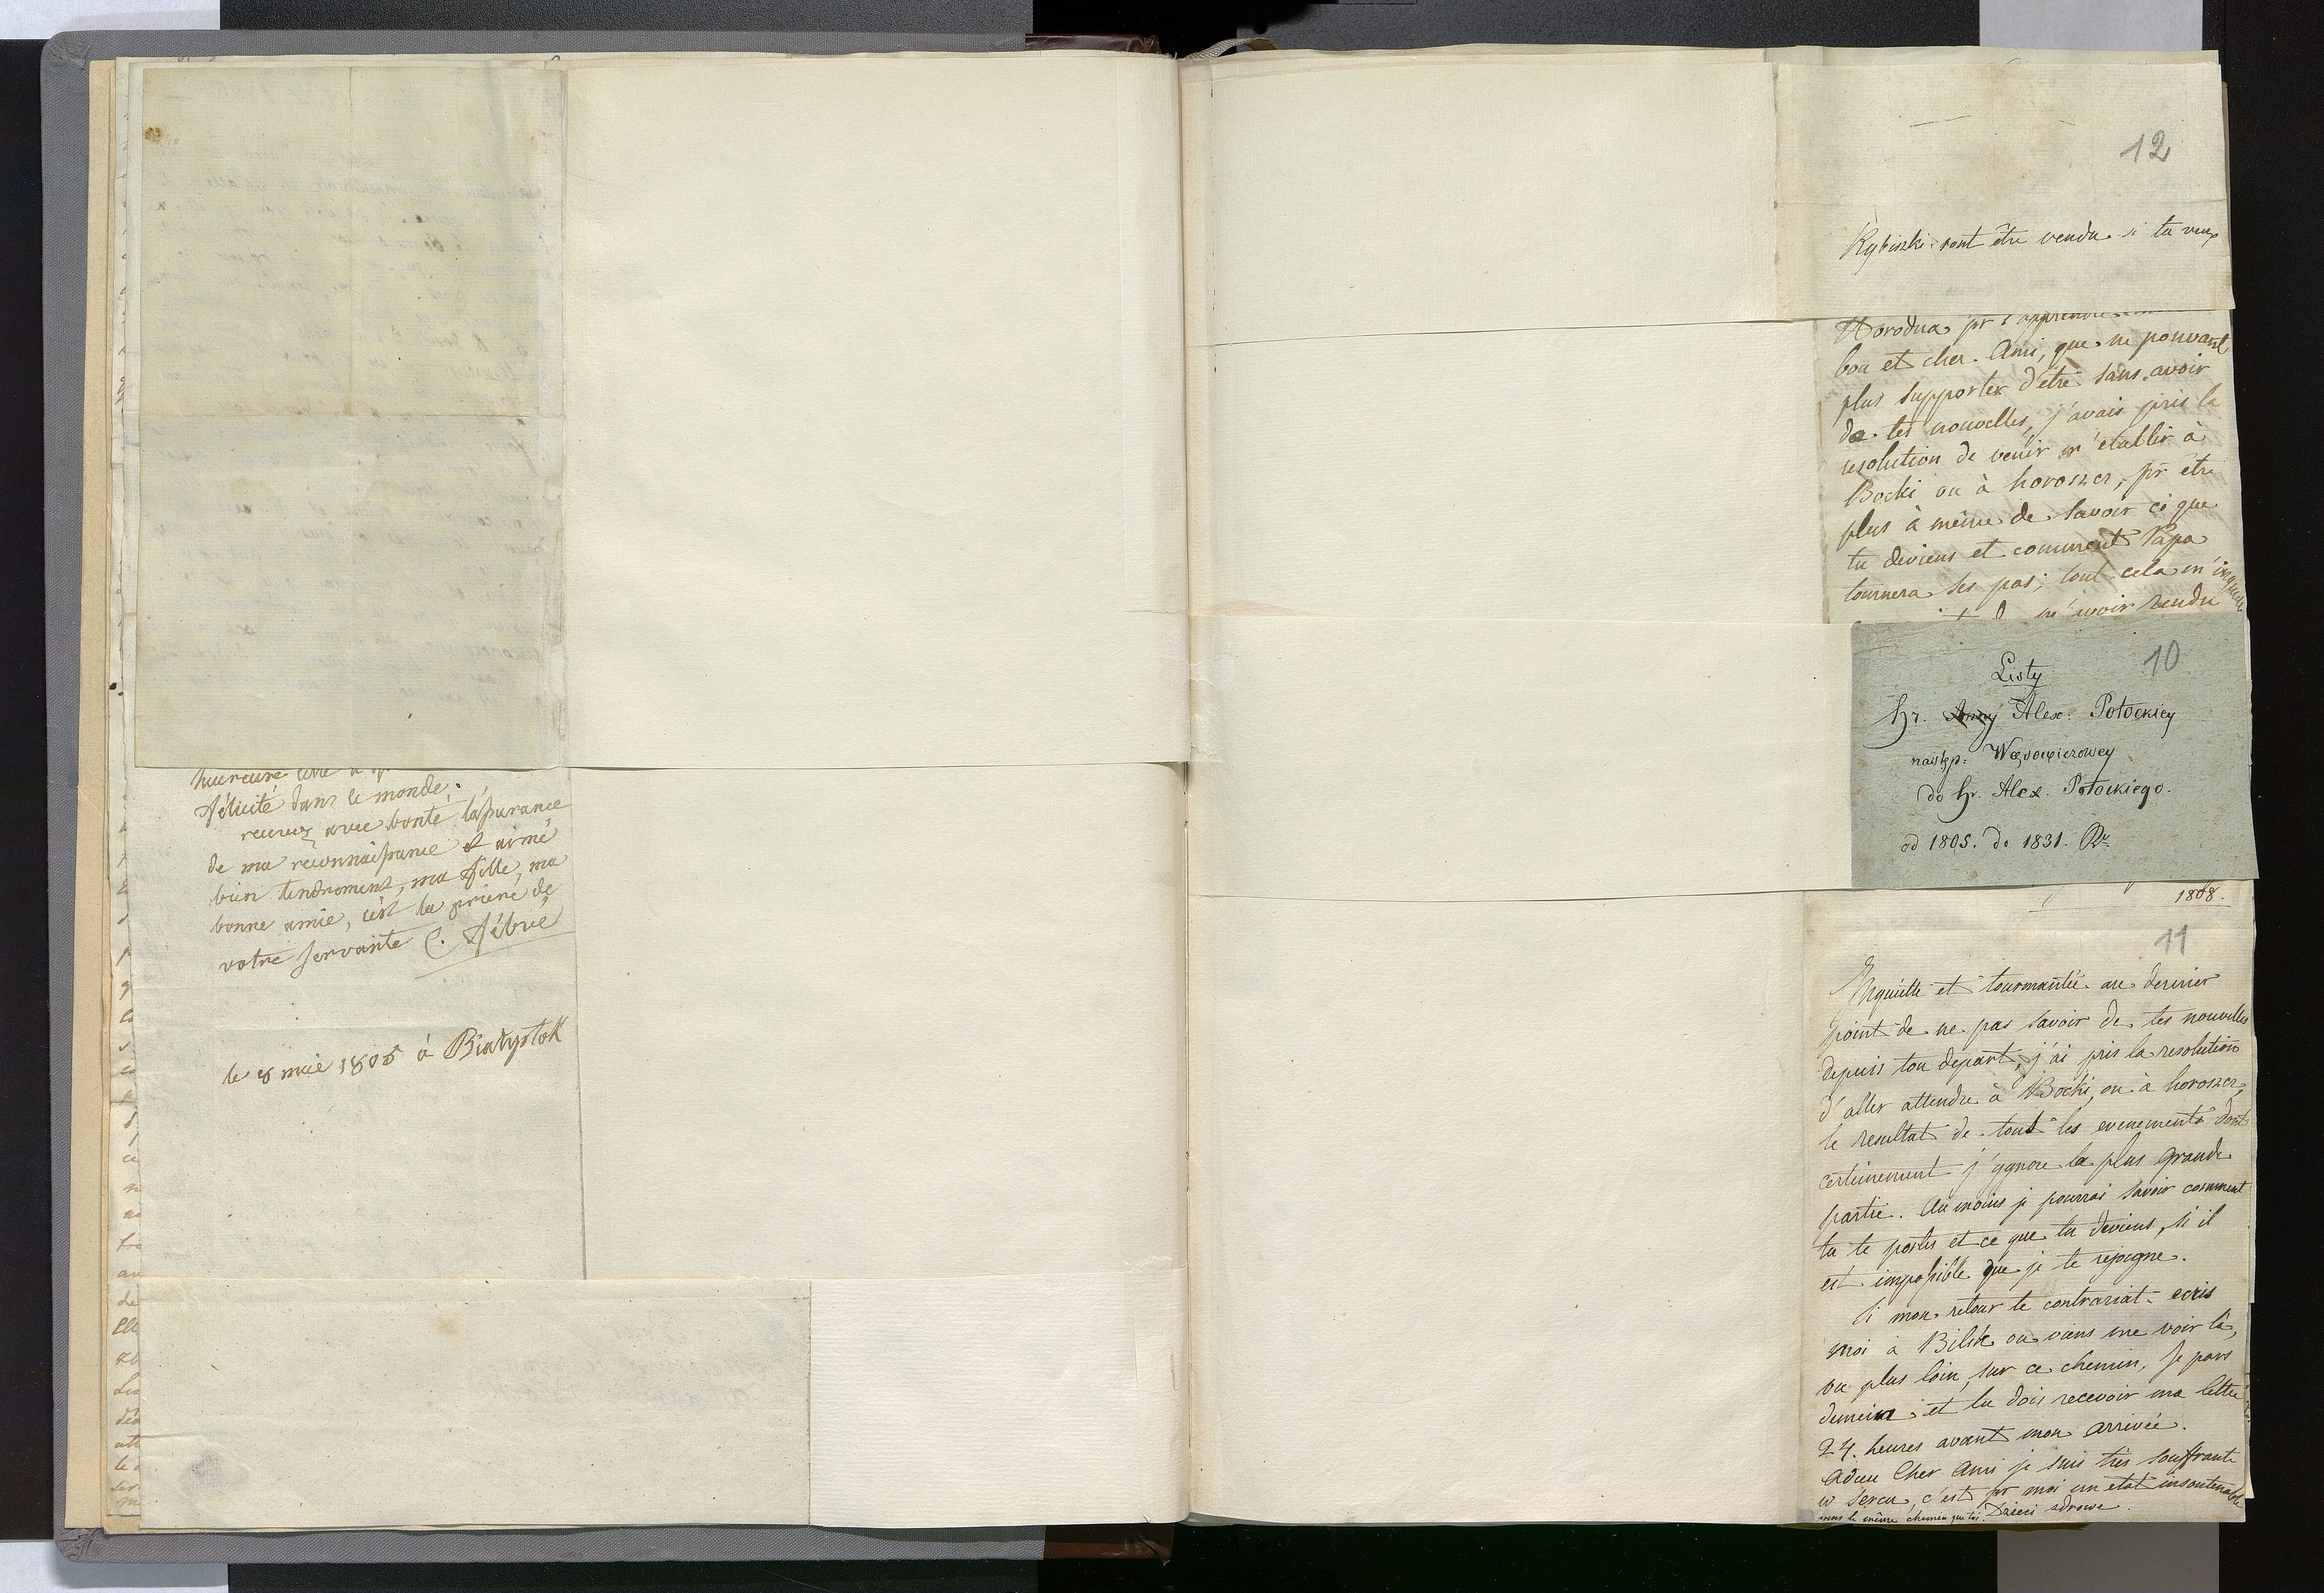 félicité dans le monde;
recevez avec bonté l'assurance
de ma reconnaissance et aimé
bien tendrement, ma fille, ma
bonne amie, c'est la prière de
votre servante C. Fébvé
le 8 mai 1805 à Białystok
12
Rybiszki vont être vendu si tu veux
Horodna pr t'apprendre
bon et cher Ami, que ne pouvant
plus supporter d'être sans avoir
de tes nouvelles, j'avais pris la
resolution de venir m'etablir à
Bocki ou à horoszcz, pr être
plus à même de savoir ce que
tu deviens et comment Papa
tournera ses pas; tout cela m'inquiete
m'avoir rendu
10
Listy
hr. Anny Alex: Potockiey
następ: Wąsowiczowey
do hr. Alex. Potockiego.
od 1805. do 1831. Ru
1808.
11
Inquiette et tourmantée au dernier
point de ne pas savoir de tes nouvelles
depuis ton depart, j'ai pris la resolution
d'aller attendre à Bocki, ou à horoszcz,
le resultat de tout les evenements dont
certeinement j'ygnore la plus grande
partie. Au moins je pourrai savoir comment
tu te portes et ce que tu deviens, si il
est impossible que je te rejoigne.
Si mon retour te contrariat ecris
moi à Bilsk ou viens me voir là,
ou plus loin, sur ce chemin, Je pars
demein et tu dois recevoir ma lettre
24. heures avant mon arrivée.
Adieu Cher Ami je suis très souffrante
w sercu, c'est pr moi un etat insoutenable
le même chemin que toi. Dzieci zdrowe.